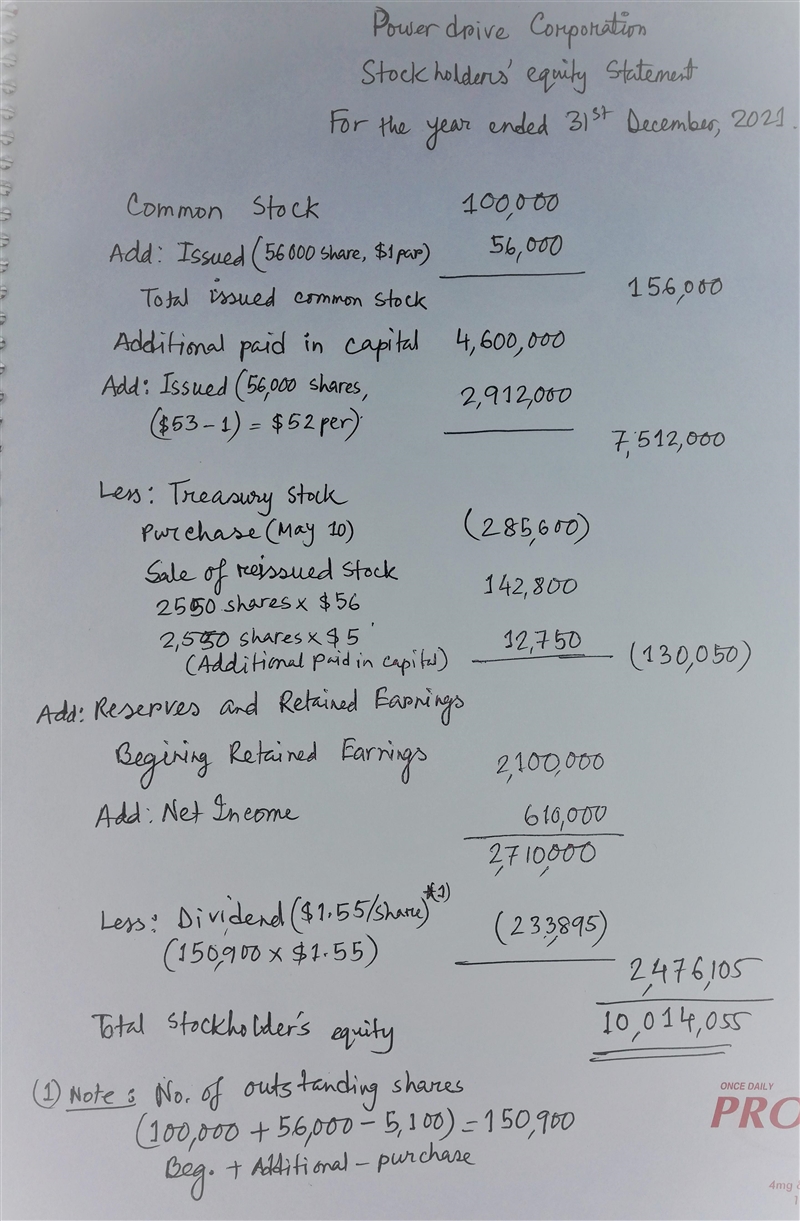 Power drive Corporation
Stockholders' equity Statement
For the year ended 31st December, 2021.
Common Stock 100,000
Add: Issued (56000 share, $1 par) 56,000
Total issued common stock 156,000
Additional paid in capital 4,600,000
Add: Issued (56,000 shares, 2,912,000
($53-1) = $52 per) 7,512,000
Less: Treasury stock
Purchase (May 10) (285,600)
Sale of reissued stock 142,800
2550 shares x $56
2,550 shares x $5 12,750
(Additional paid in capital) (130,050)
Add: Reserves and Retained Earnings
Begining Retained Earnings 2,100,000
Add: Net Income 610,000
2,710,000
Less: Dividend ($1.55/share)*1) (233,895)
(150,900 x $1.55)
2,476,105
Total stockholder's equity 10,014,055
(1) Note: No. of outstanding shares
(100,000 + 56,000 - 5,100) = 150,900
Beg. + Additional - purchase
ONCE DAILY
PRO
4mg &
1